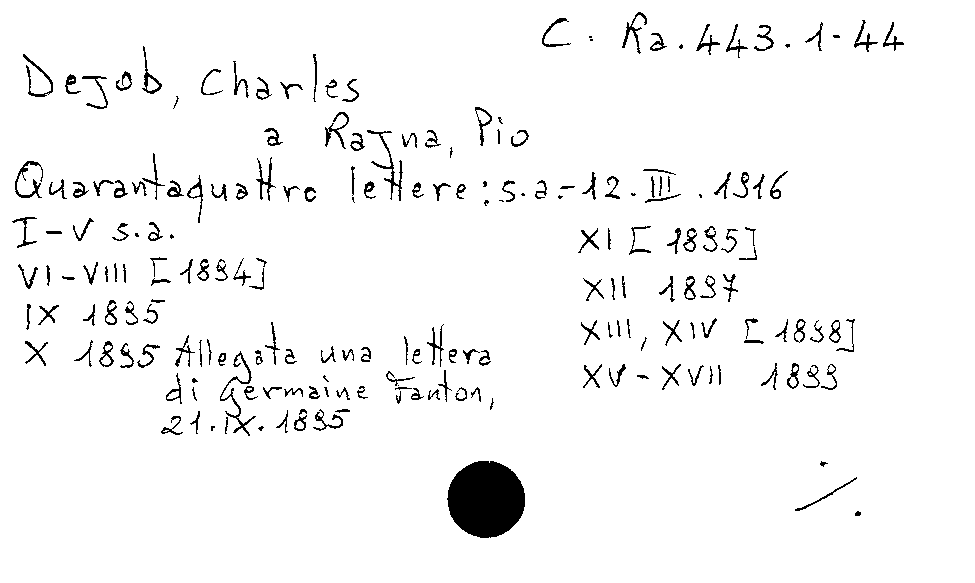 C. Ra. 443. 1-44
Dejob, Charles
a Rajna, Pio
Quarantaquattro lettere: s.a.-12.III.1916
I-V s.a.
VI-VIII [1894]
IX 1895
X 1895 Allegata una lettera
di Germaine Fanton,
21.IX.1895
XI [1895]
XII 1897
XIII, XIV [1898]
XV-XVII 1899
./.